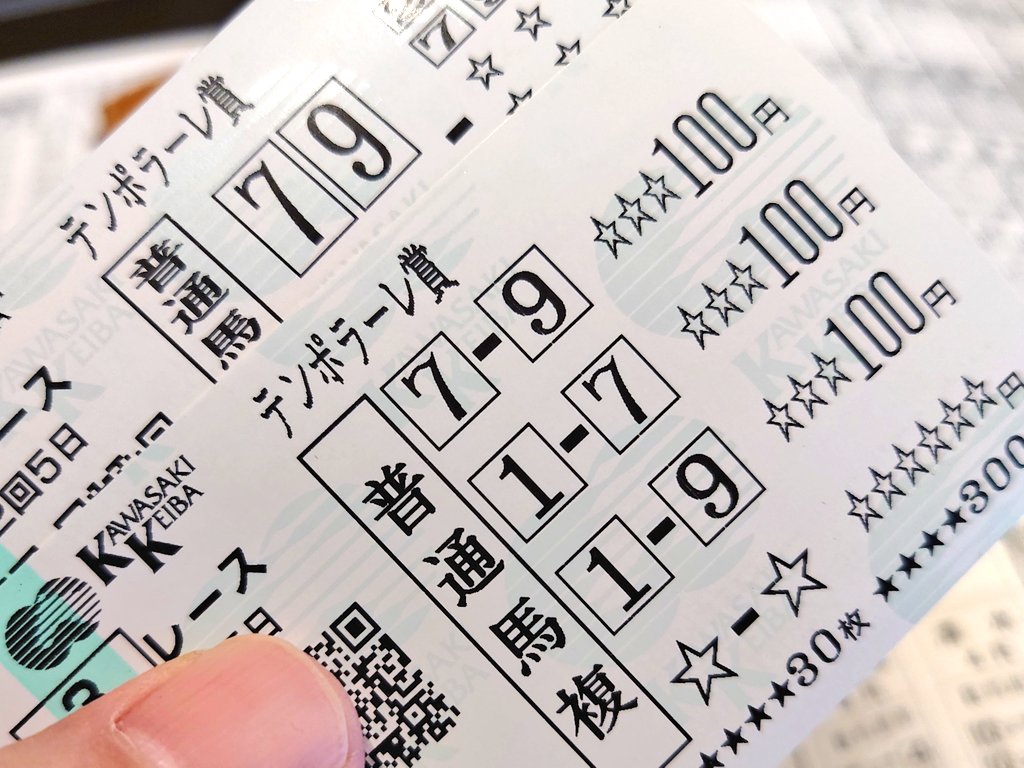 テンポラーレ賞
普通馬
7 9 -☆☆☆
ース
2回5日
KAWASAKI
KEIBA
レース
5日
テンポラーレ賞
普通馬複
7-9 ☆☆☆100円
1-7 ☆☆☆100円
1-9 ☆☆☆100円
☆-☆ ☆☆☆☆☆☆円
★★★★30枚 ★★★★300